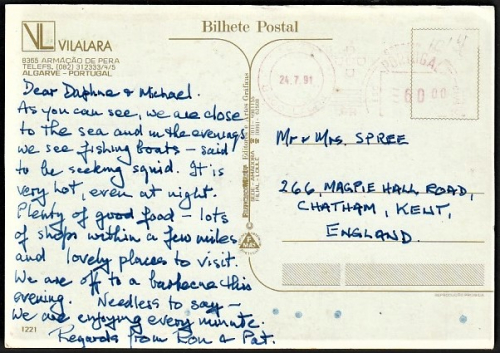 VL VILALARA
8365 ARMAÇÃO DE PERA
TELEFS. (082) 312333/4/5
ALGARVE - PORTUGAL
Bilhete Postal
24.7.91
PORTUGAL
60.00
Dear Daphne & Michael.
As you can see, we are close
to the sea and in the evenings
we see fishing boats – said
to be seeking squid. It is
very hot, even at night.
Plenty of good food – lots
of shops within a few miles
and lovely places to visit.
We are off to a barbecue this
evening. Needless to say –
we are enjoying every minute.
Regards from Ron & Pat.
1221
Mr & Mrs. SPREE
266, MAGPIE HALL ROAD,
CHATHAM, KENT,
ENGLAND.